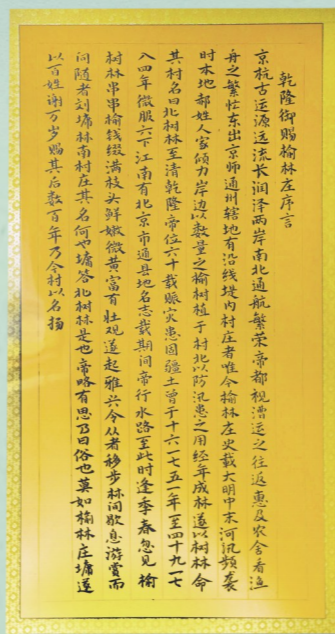 乾隆御赐榆林庄序言
京杭古运源远流长润泽两岸南北通航繁荣帝都视漕运之往返惠及农舍看渔
舟之繁忙东出京师通州辖地有沿线堤内村庄者唯今榆林庄史载大明中末河汛频袭
时本地郝姓人家倾力岸边以数量之榆树植于村北以防汛患之用经年成林遂以树林命
其村名曰北树林至清乾隆帝位六十载赈灾患固疆土曾于十六一七五一年至四十九一七
八四年微服六下江南有北京市通县地名志载期间帝行水路至此时逢季春忽见榆
树林串串榆钱缀满枝头鲜嫩微黄富有壮观遂起雅兴令从者移步林间歇息游赏而
问随者刘墉林南村庄其名何也墉答北树林是也帝略有思乃曰俗也莫如榆林庄墉遂
以百姓谢万岁赐其后数百年乃今村以名扬